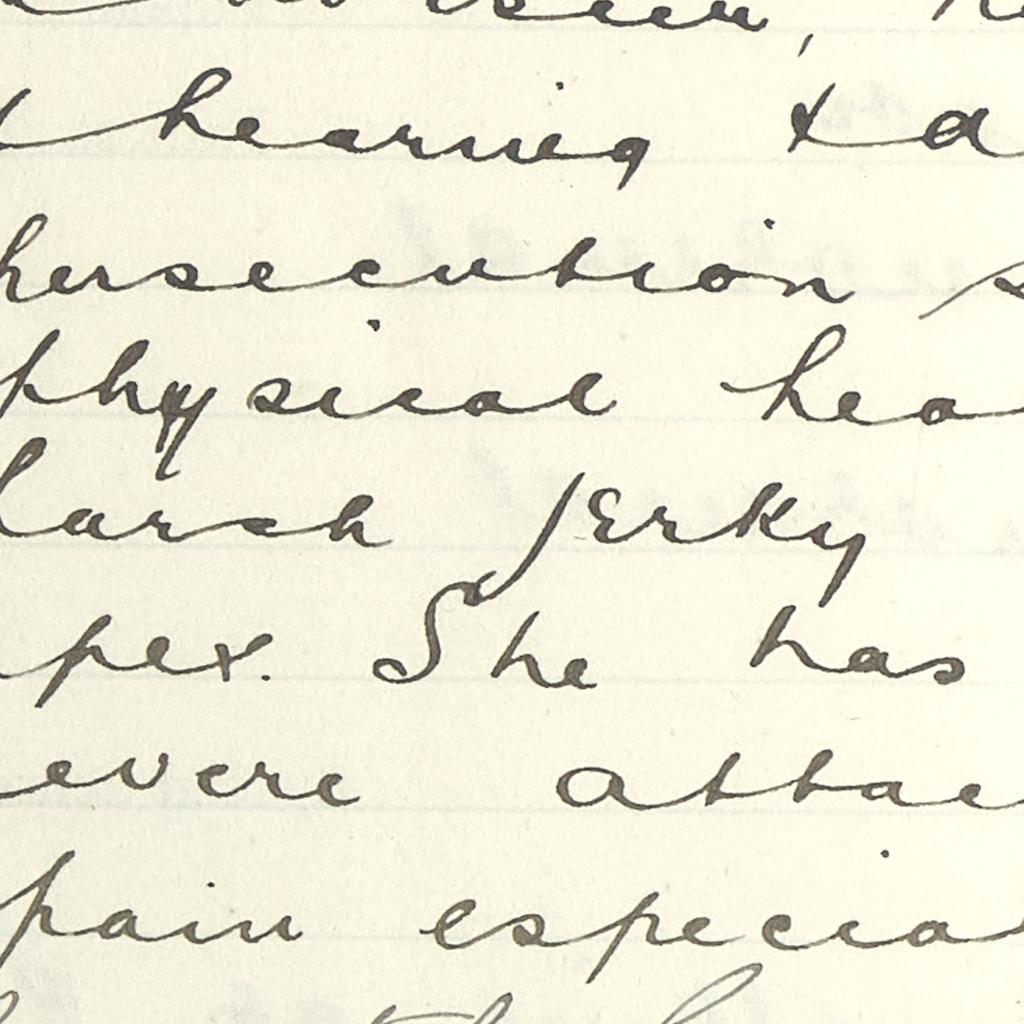 hearing & a
persecution s
physical hea
harsh jerky
pex. She has
evere attac
pain especial